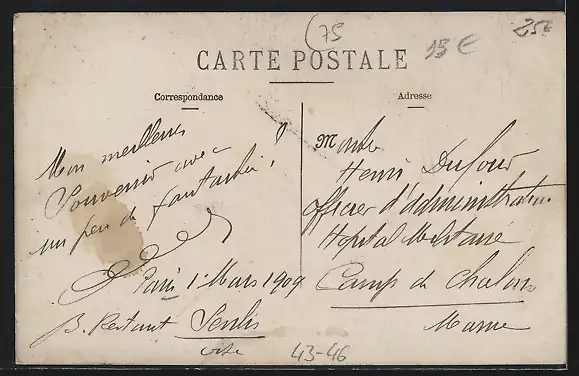 (75
15€
25€
CARTE POSTALE
Correspondance
Adresse
Mon meilleur
Souvenir avec
un peu de fantaisie!
Paris 1 Mars 1909
B. Restant Senlis
oise
M
Henri Dufour
officier d'administration
Hopital Militaire
Camp de Chalons
Marne
43-46